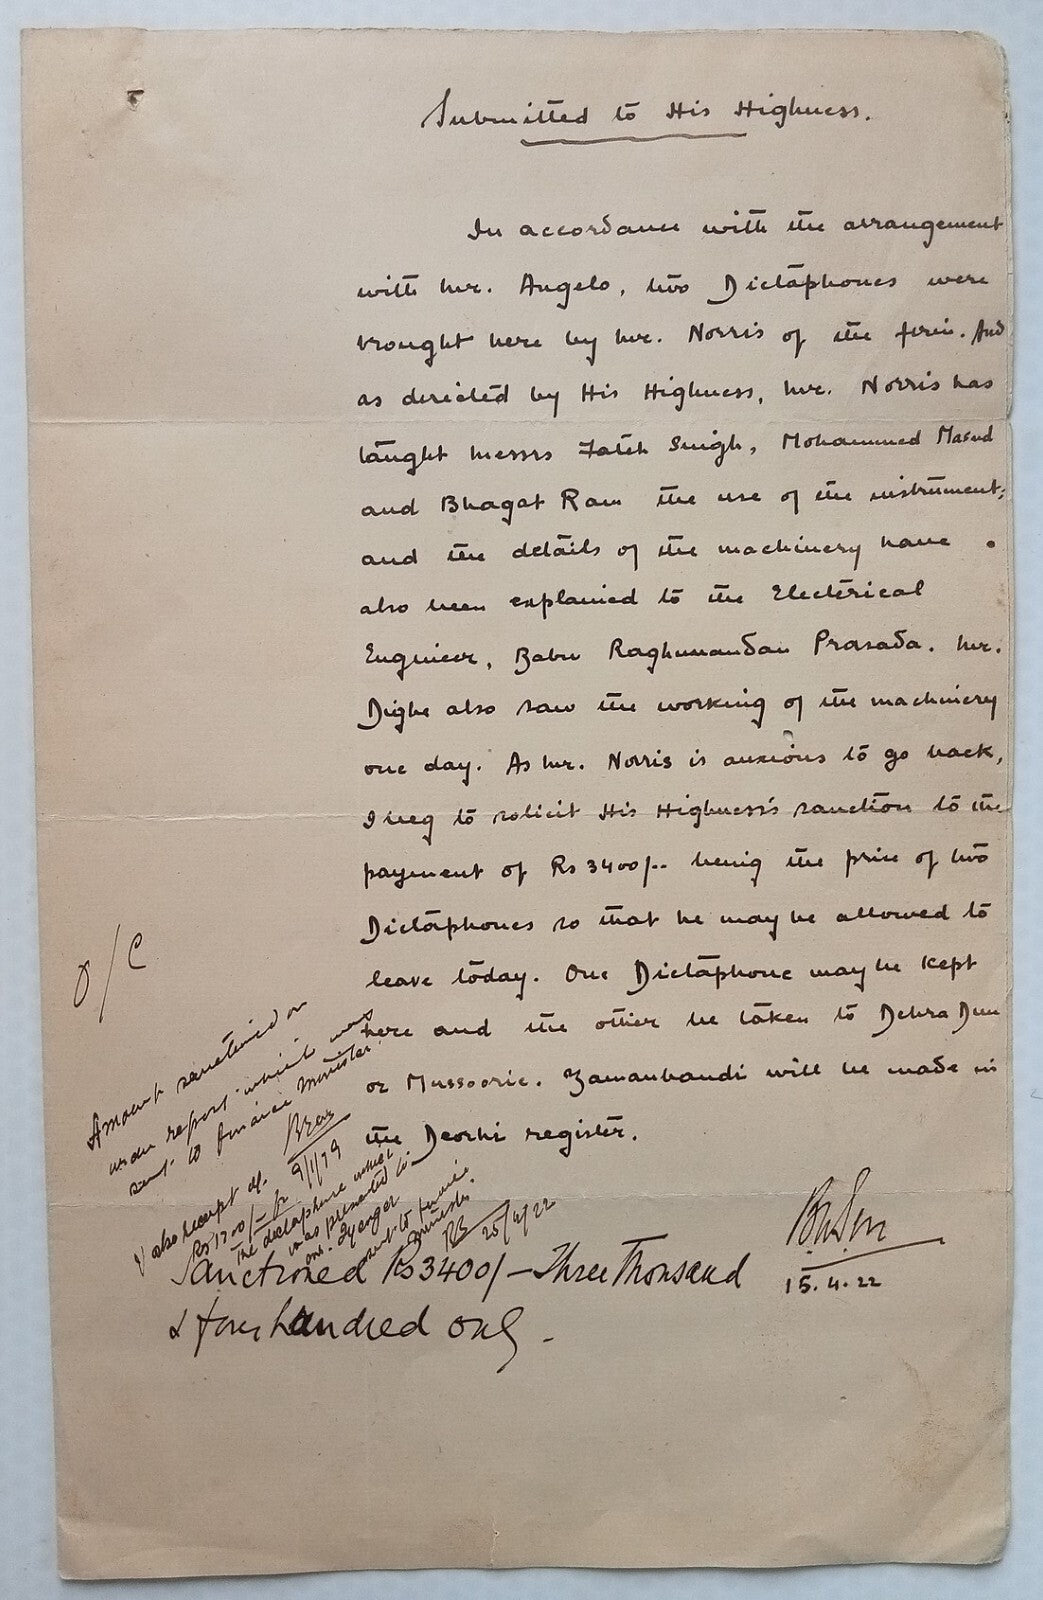 Submitted to His Highness.
In accordance with the arrangement
with Mr. Angelo, two Dictaphones were
brought here by Mr. Norris of the firm. And
as directed by His Highness, Mr. Norris has
taught Messrs Fateh Singh, Mohammed Masud
and Bhagat Ram the use of the instrument;
and the details of the machinery have
also been explained to the Electrical
Engineer, Babu Raghunandan Prasada. Mr.
Dighe also saw the working of the machinery
one day. As Mr. Norris is anxious to go back,
I beg to solicit His Highness's sanction to the
payment of Rs 3400/-- being the price of two
Dictaphones so that he may be allowed to
leave today. One Dictaphone may be kept
here and the other be taken to Dehra Dun
or Mussoorie. Zamanbandi will be made in
the Deorhi register.
15.4.22
O/C
Amount sanctioned on
report which was
sent to finance Minister
9/1/79
also receipt of
Rs 1700/- for
the dictaphone which
was presented to
sent to finance
minister.
25/4/22
Sanctioned Rs 3400/- Three Thousand
& four hundred only -